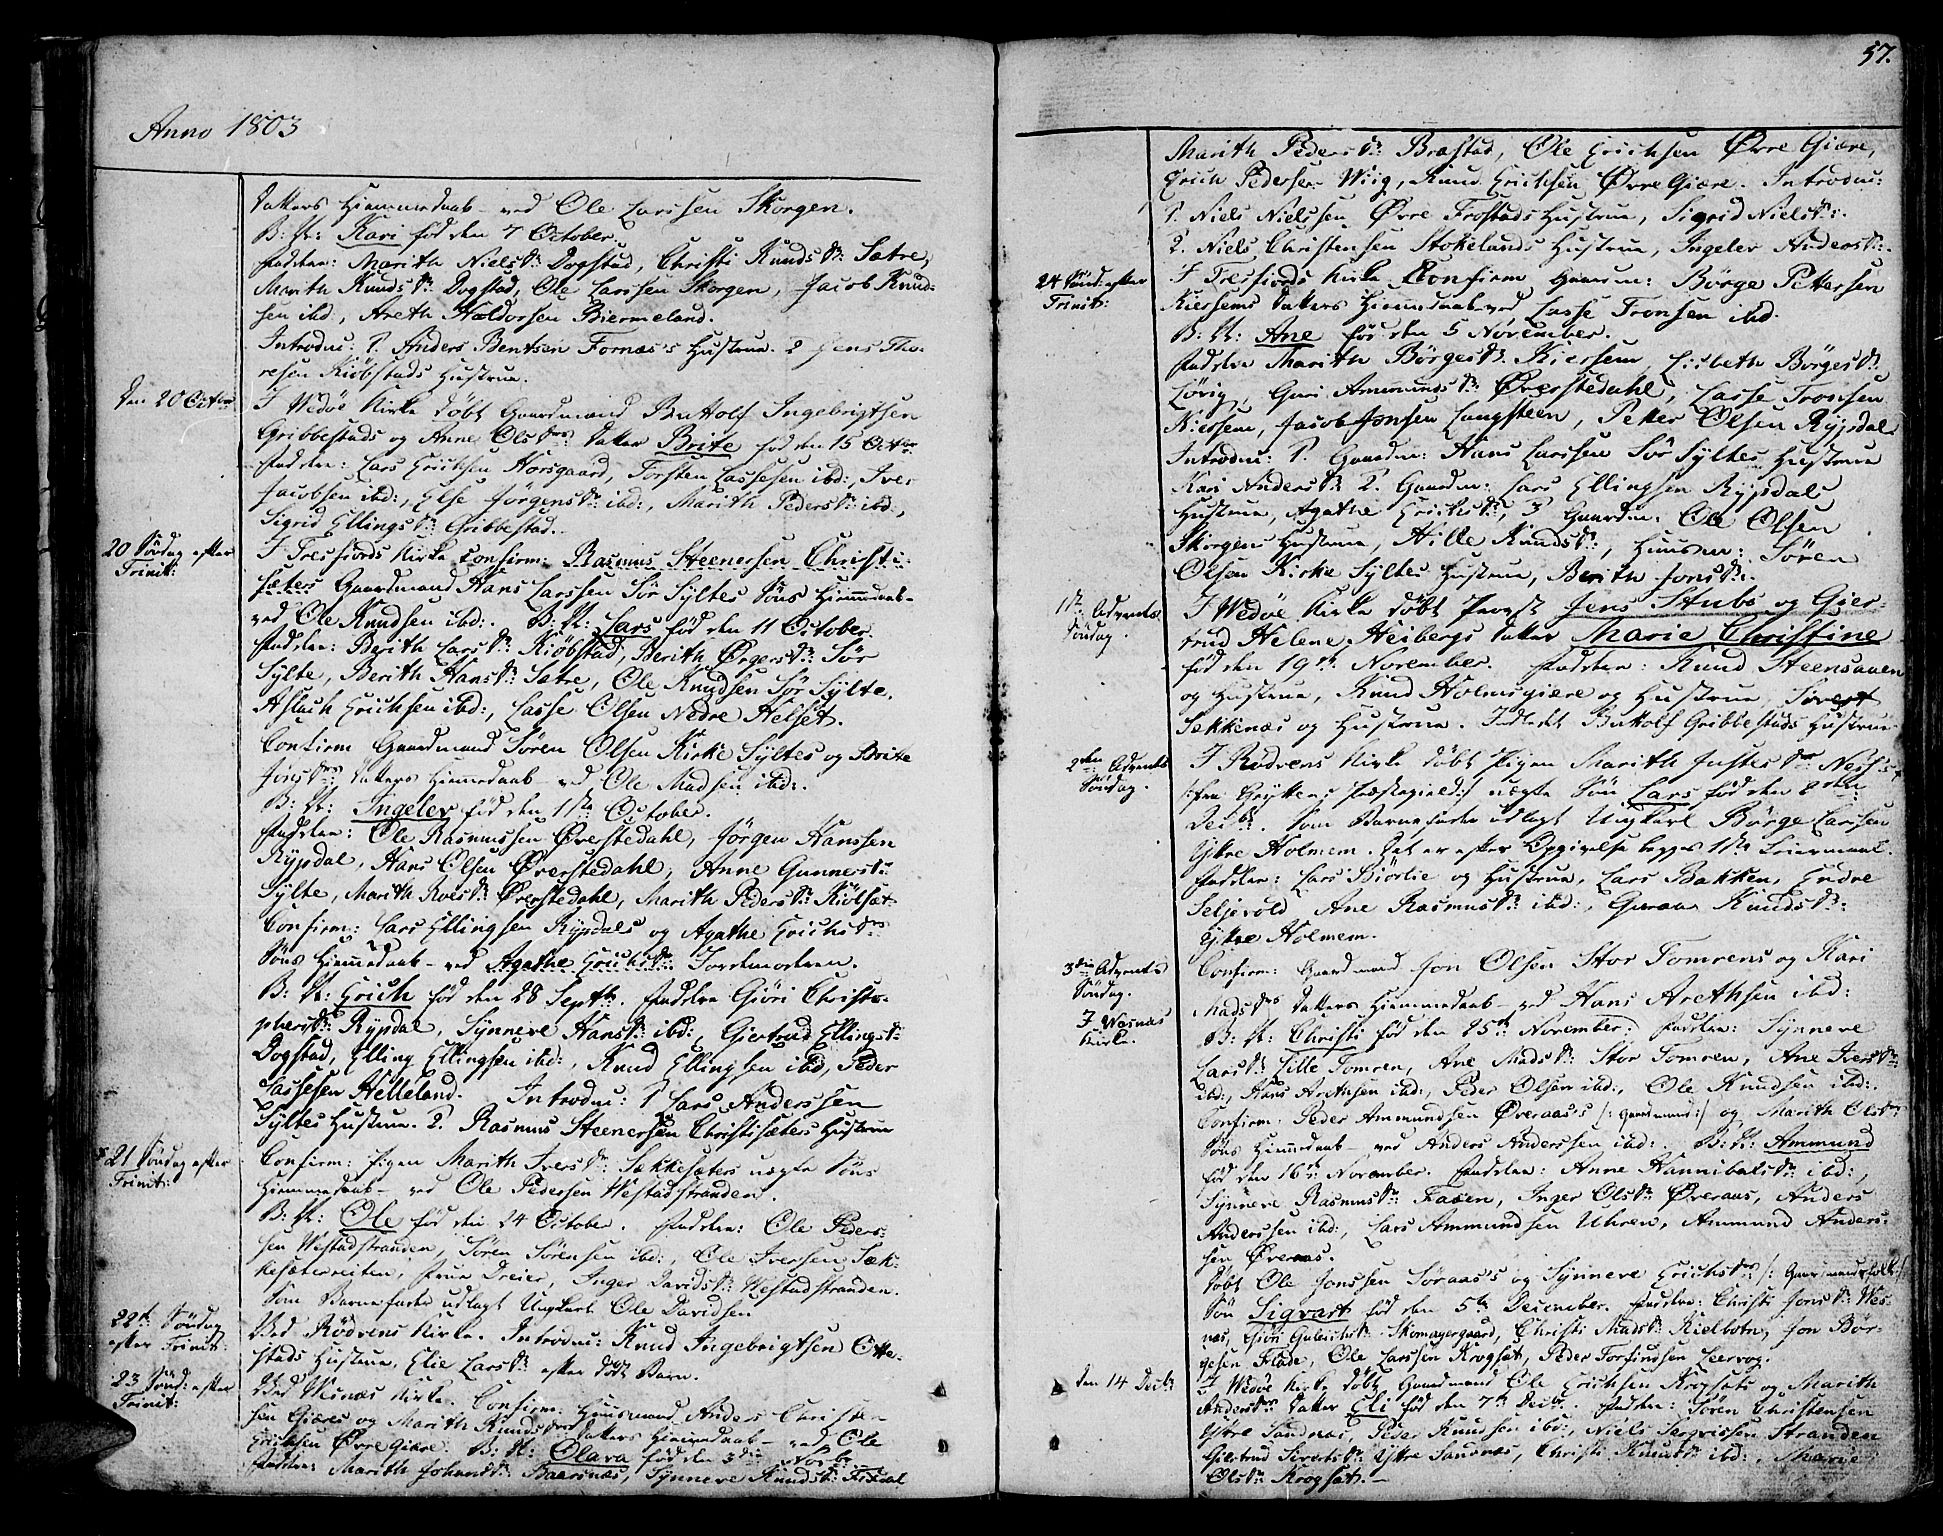 Anno 1803
Datters Hiemmedaab ved Ole Larssen Skorgen.
B: N: Kari fød den 7 October.
Faddere: Marith Nielsdr: Dogstad, Christi Knudsdr: Sætre,
Marith Knudsdr: Dogstad, Ole Larssen Skorgen, Jacob Knud-
sen ibd:, Areth Haldorsen Biermeland.
Introdu: 1. Anders Bentsen Fornæs's Hustrue. 2 Jens Tho-
resen Kiöbstads Hustrue.
Den 20 Octbr
I Wedøe Kirke döbt Gaardmand Buttolf Ingebrigtsen
Gribbestads og Anne Olsdrs Datter Brite fød den 15 Octbr
Faddere: Lars Erichsen Horsgaard, Torsten Lassesen ibd:, Iver
Jacobsen ibd:, Else Jörgensdr: ibd:, Marith Pedersdr: ibd:,
Sigrid Ellingsdr: Gribbestad.
20 Söndag efter
Trinit:
I Tresfiords Kirke confirm: Rasmus Steenersen Christi-
sæters Gaardmand Hans Larssen Sör Syltes Söns Hiemmedaab
ved Ole Knudsen ibd:. B: N: Lars fød den 11 October.
Faddere: Berith Larsdr: Kiöbstad, Berith Örgersdr: Sör
Sylte, Berith Hansdr: Sætre, Ole Knudsen Sör Sylte,
Aslach Erichsen ibd:, Lasse Olsen Nedre Helset.
Confirm Gaardmand Sören Olsen Kirke Syltes og Brite
Jonsdrs Datters Hiemmedaab ved Ole Madsen ibd:
B: N: Ingeler fød den 1ste October.
Faddere: Ole Rasmussen Överstedahl, Jörgen Hanssen
Rypdal, Hans Olsen Överstedahl, Anne Gunnersdr:
Sylte, Marith Roesdr: Överstedahl, Marith Pedersdr: Kiölsæt
Confirm: Lars Ellingsen Rypdals og Agathe Erichsdrs
Söns Hiemmedaab ved Agathe Erichsdr: Jordemoderen.
B: N: Erich fød den 28 Septbr. Faddere Giöri Christo-
phersdr: Rypdal, Synneve Hansdr: ibd:, Giertrud Ellingsdr:
Dogstad, Elling Ellingsen ibd:, Knud Ellingsen ibd, Peder
Lassesen Helleland. Introdu: 1 Lars Anderssen
Syltes Hustrue. 2. Rasmus Steenersen Christisæters Hustrue
21 Söndag efter
Trinit:
Confirm: Pigen Marith Iversdr: Sækkesæters uægte Söns
Hiemmedaab ved Ole Pedersen Westadstranden.
B: N: Ole fød den 24 October. Faddere: Ole Peders-
sen Westadstranden, Sören Sörensen ibd:, Ole Iversen Sæk-
kesæterreiten, Frue Dreier, Inger Davidsdr: Westadstranden.
Som Barnefader udlagt Ungkarl Ole Davidsen
22de Söndag
efter Trinit:
Ved Rödvens Kirke. Introdu: Knud Ingebrigtsen Otte-
stads Hustrue, Elie Larsdr: efter dödt Barn.
23 Sönd: efter
Trinit:
Ved Wesnæs Kirke. Confirm: Huusmand Anders Christen
sen Giæres og Marith Knudsdrs Datters Hiemmedaab ved Ole
Erichsen Övre Giære. B: N: Olava fød den 3die Novbr
Faddere: Marith Johansdr: Baarsnæs, Synneve Knudsdr: Frisdal
57.
Marith Pedersdr: Brastad, Ole Erichsen Övre Giære,
Erich Pedersen Wiig, Knud Erichsen Övre Giære. Introdu:
1. Niels Nielssen Övre Frostads Hustrue, Sigrid Nielsdr:.
2. Niels Christensen Stokelands Hustrue, Ingeler Andersdr:.
24 Sönd: efter
Trinit:
I Tresfiords Kirke Confirm Gaardm: Börge Pettersen
Kiersems Datters Hiemmedaab ved Lasse Tronsen ibd.
B: N: Ane fød den 5 November.
Faddere Marith Börgesdr: Kiersem, Lisbeth Börgesdr:
Lövig, Guri Ammundsdr: Överstedahl, Lasse Tronsen
Kiersem, Jacob Jonsen Langsteen, Petter Olsen Rypdal
Introdu: 1. Gaardm: Hans Larssen Sör Syltes Hustrue
Kari Andersdr: 2. Gaardm: Lars Ellingsen Rypdals
Hustrue, Agathe Erichsdr:, 3 Gaardm: Ole Olsen
Skorgens Hustrue, Hille Knudsdr:, Huusm: Sören
Olsen Kirke Syltes Hustrue, Berith Jonsdr:.
1ste Advents
Söndag.
I Wedøe Kirke döbt Provst Jens Stubs og Gier-
trud Helene Heibergs Datter Marie Christine
fød den 19de November. Faddere: Knud Steensauen
og Hustrue, Knud Holmsgiære og Hustrue, Sivert
Sækkenæs og Hustrue. Indledet Buttolf Gribbestads Hustrue
2den Advents
Söndag.
I Rödvens Kirke döbt Pigen Marith Justesdrs Næss
/: fra Gryttens Præstegield :/ uægte Sön Lars fød den 8de
Decbr. Som Barnefader udlagt Ungkarl Börge Larssen
Ytre Holmem. Det er efter Opgivelse begges 1ste Leiermaal.
Faddere: Lars Biörlie og Hustrue, Lars Bakken, Endre
Seljevold Ane Rasmusdr: ibd:, Guraa Knudsdr:
Ytre Holmem.
3die Advents
Söndag.
I Wesnæs
Kirke.
Confirm: Gaardmand Jon Olsen Stor Tomrens og Kari
Madsdrs Datters Hiemmedaab ved Hans Arethsen ibd:
B: N: Christi fød den 25de November: Faddere: Synneve
Larsdr: Lille Tomren, Ane Madsdr: Stor Tomren, Ane Iversdr:
ibd:, Hans Arethsen ibd:, Peder Olsen ibd:, Ole Knudsen ibd:.
Confirm: Peder Ammundsen Överaas's /: Gaardmand :/ og Marith Olsdrs
Söns Hiemmedaab ved Anders Anderssen ibd:. B: N: Ammund
fød den 16de November. Faddere: Anne Hannibalsdr: ibd:,
Synneve Rasmusdr: Faaen, Inger Olsdr: Överaas, Anders
Anderssen ibd:, Lars Ammundsen Uhren, Ammund Anders-
sen Överaas.
Döbt Ole Jonssen Söraas's og Synneve Erichsdrs /: Gaardmandsfolk :/
Sön Sigvart fød den 5te December. Faddere: Christi Jonsdr: Wes-
næs, Giöri Gulichsdr: Skomagergaard, Christi Madsdr: Kielbotn, Jon Bör-
gesen Flade, Ole Larssen Krogsæt, Peder Torfinssen Leervog.
Den 14 Decbr
I Wedøe Kirke döbt Gaardmand Ole Erichsen Krogsæts og Marith
Andersdrs Datter Eli fød den 7de Decbr. Faddere: Sören Christensen
Ytre Sandnæs, Peder Knudsen ibd:, Niels Sergvissen Stranden
Giertrud Sivertsdr: Ytre Sandnæs, Christi Knudsdr: ibd:, Marie
Olsdr: Krogsæt.